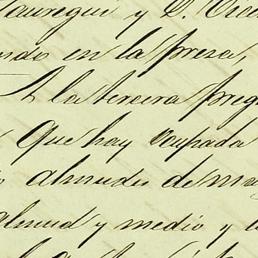 Jauregui y D. Vice
ndo en la presa,
A la tercera preg
Que hay ocupada
almudes de ma
almud y medio y